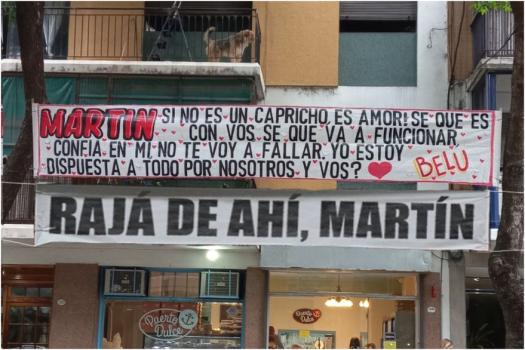 MARTIN SI NO ES UN CAPRICHO, ES AMOR! SE QUE ES
CON VOS. SE QUE VA A FUNCIONAR,
CONFIA EN MI, NO TE VOY A FALLAR. YO ESTOY
DISPUESTA A TODO POR NOSOTROS, Y VOS?
BELU
RAJÁ DE AHÍ, MARTÍN
Puerto
Dulce
Puerto
Dulce